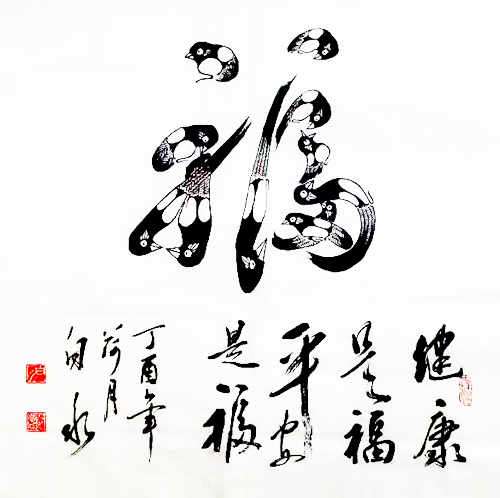 福
健康
是福
平安
是福
丁酉年
荷月
白水